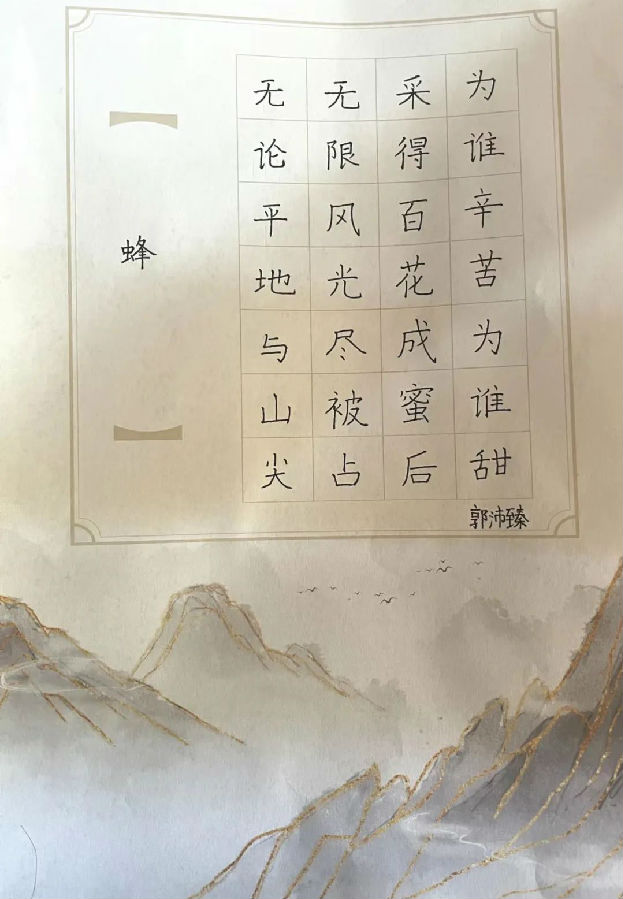 蜂
无论平地与山尖
无限风光尽被占
采得百花成蜜后
为谁辛苦为谁甜
郭沛臻